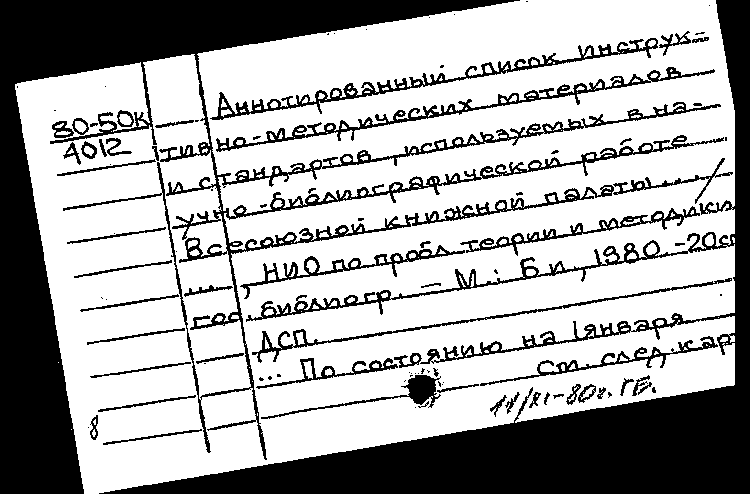 80-50к
4012
Аннотированный список инструк-
тивно-методических материалов
и стандартов, используемых в на-
учно-библиографической работе
Всесоюзной книжной палаты ... /
..., НИО по пробл. теории и методики
гос. библиогр. — М.: Б и, 1980. -20с
ДСП.
... По состоянию на 1 января
См. след. кар
11/XI-80г. ГБ.
8